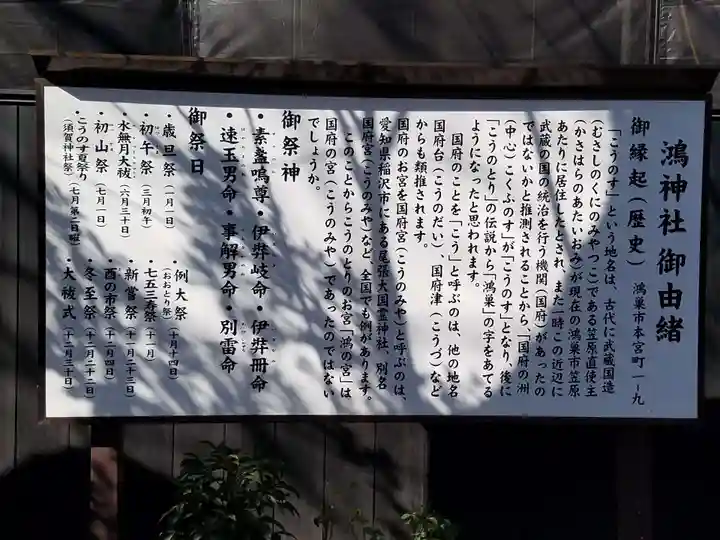 鴻神社 御由緒
御縁起（歴史） 鴻巣市本宮町一ー九
「こうのす」という地名は、古代に武蔵国造
（むさしのくにのみやつこ）である笠原直使主
（かさはらのあたいおみ）が現在の鴻巣市笠原
あたりに居住したとされ、また一時この近辺に
武蔵の国の統治を行う機関（国府）があったの
ではないかと推測されることから、「国府の洲
（中心）こくふのす」が「こうのす」となり、後に
「こうのとり」の伝説から「鴻巣」の字をあてる
ようになったと思われます。
国府のことを「こう」と呼ぶのは、他の地名
国府台（こうのだい）、国府津（こうづ）など
からも類推されます。
国府のお宮を国府宮（こうのみや）と呼ぶのは、
愛知県稲沢市にある尾張大国霊神社、別名
国府宮（こうのみや）など、全国でも例があります。
このことからこうのとりのお宮「鴻の宮」は
国府の宮（こうのみや）であったのではない
でしょうか。
御祭神
・素盞嗚尊・伊弉岐命・伊弉冊命
・速玉男命・事解男命・別雷命
御祭日
・歳旦祭（一月一日）
・初午祭（三月初午）
・水無月大祓（六月三十日）
・初山祭（七月一日）
・こうのす夏祭り
（須賀神社祭）（七月第二日曜）
・例大祭
（おおとり祭）（十月十四日）
・七五三寿祭（十一月）
・新嘗祭（十一月二十三日）
・酉の市祭（十二月四日）
・冬至祭（十二月二十二日）
・大祓式（十二月三十日）